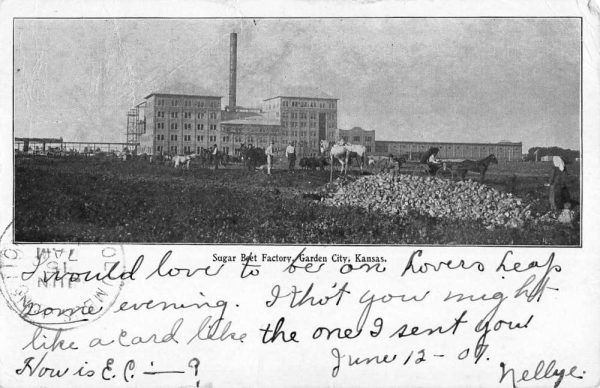 Sugar Beet Factory, Garden City, Kansas.
I would love to be on Lovers Leap
some evening. I tho't you might
like a card like the one I sent you
How is E.C. — ? June 12-07.
Nellye.
7 AM
JUN